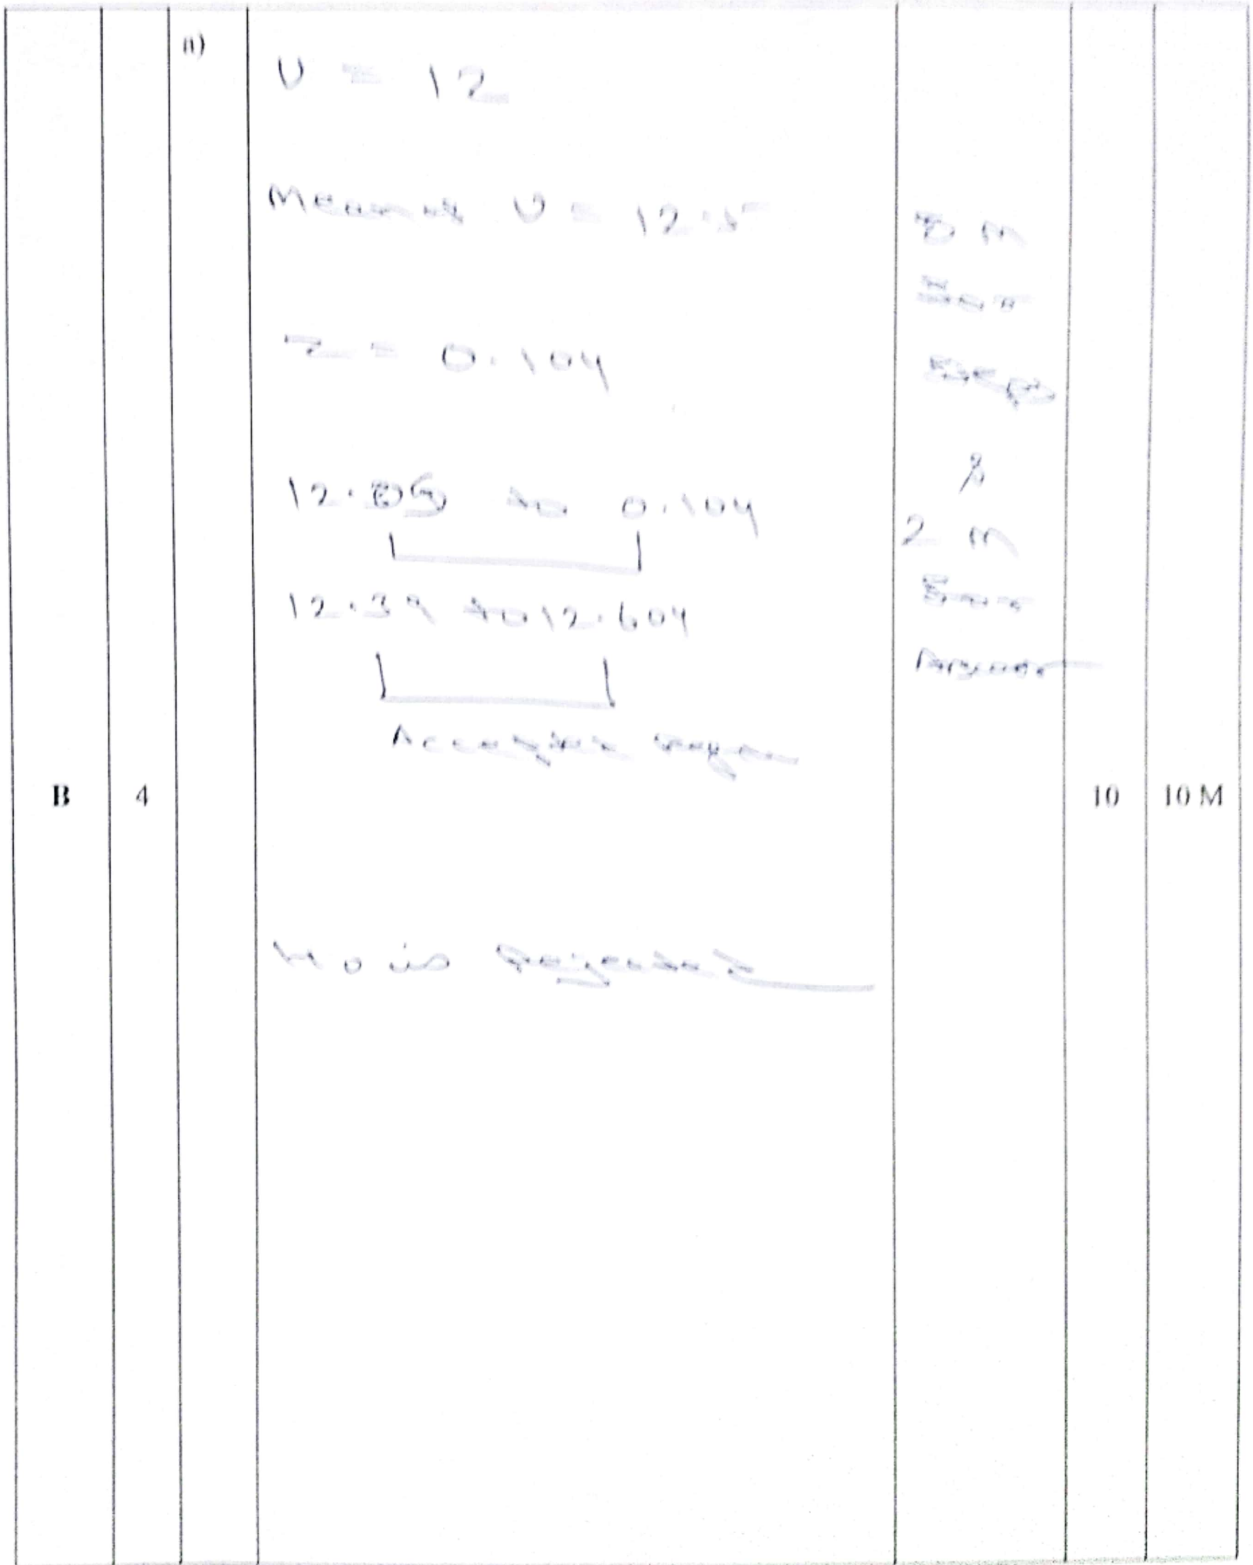 a)
U = 12
Mean of U = 12.5
Z = 0.104
12.05 to 0.104
12.39 to 12.604
Acceptance region
Ho is Rejected
8 M
for
Step
&
2 M
for
Answer
B 4 10 10 M